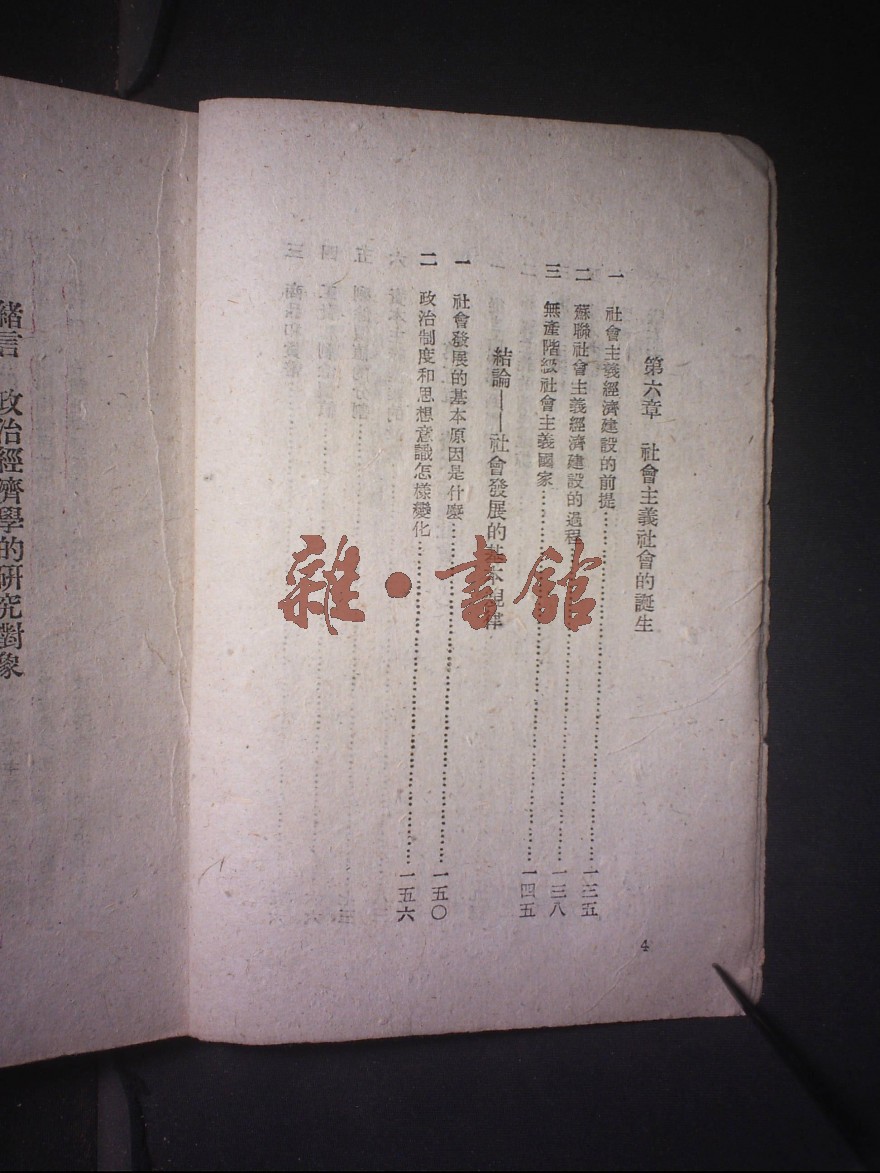 第六章　社會主義社會的誕生
一　社會主義經濟建設的前提……一三五
二　蘇聯社會主義經濟建設的過程……一三八
三　無產階級社會主義國家……一四五
結論——社會發展的基本規律
一　社會發展的基本原因是什麼……一五〇
二　政治制度和思想意識怎樣變化……一五六
4
雜·書館
緒言　政治經濟學的研究對象